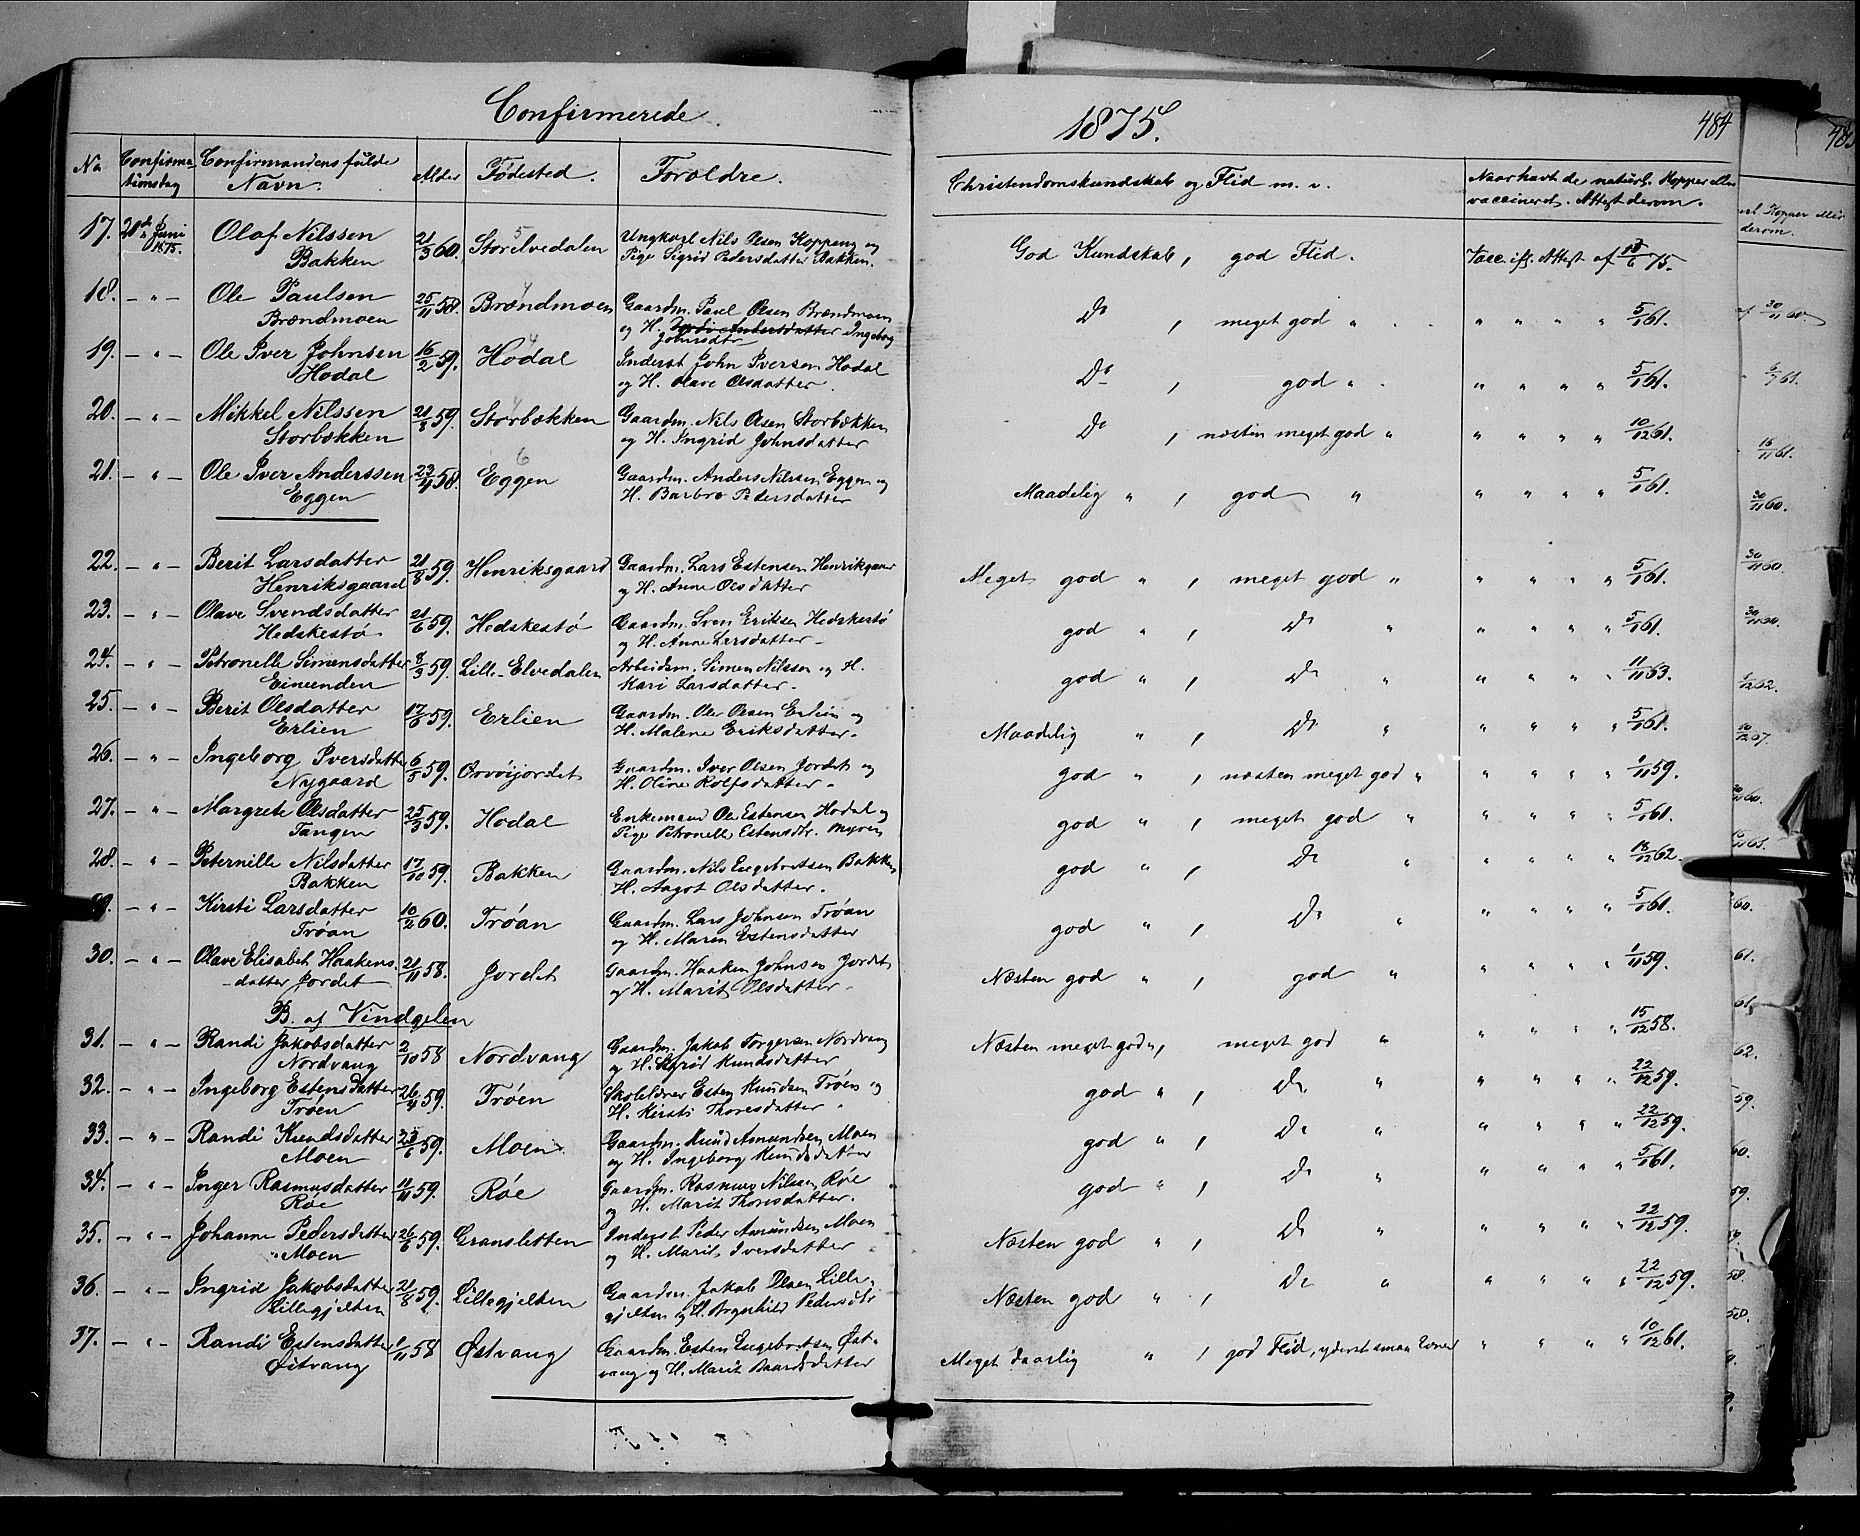 Confirmerede
1875.
484
No Confirmationsdag Confirmandens fulde Navn. Alder Fødested. Forældre. Christendomskundskab og Flid m. v. Naar havt de naturl. Kopper eller vaccineret. Attest derom.
17. 20de Juni 1875. Olaf Nilssen Bakken 21/3 60. Storelvedalen 5 Ungkarl Nils Olsen Koppang og Pige Sigrid Pedersdatter Bakken. God Kundskab, god Flid. Vacc. ifl. Attest af 18/6 75.
18. — " — Ole Paulsen Brændmoen 25/11 58. Brændmoen 4 Gaardm. Paul Olsen Brændmoen og H. Ingeborg Johnsdtr Do , meget god " " " " " 5/1 61.
19. — " — Ole Iver Johnsen Hodal 16/2 59. Hodal 4 Inderst John Iversen Hodal og H. Olave Olsdatter. Do , god " " " " " 5/1 61.
20. — " — Mikkel Nilssen Storbækken 21/8 59. Storbækken 4 Gaardm. Nils Olsen Storbækken og H. Ingrid Johnsdatter Do , næsten meget god " " " " " 10/12 61.
21. — " — Ole Iver Anderssen Eggen 23/4 58. Eggen 6 Gaardm. Anders Nilssen Eggen og H. Barbro Pedersdatter Maadelig " , god " " " " " 5/1 61.
22. — " — Berit Larsdatter Henriksgaard 21/8 59. Henriksgaard Gaardm. Lars Estensen Henriksgaard og H. Anne Olsdatter Meget god " , meget god " " " " " 5/1 61.
23. — " — Olave Svendsdatter Hedskestø 21/6 59. Hedskestø Gaardm. Sven Eriksen Hedskestø og H. Anne Larsdatter - god " , Do " " " " " 5/1 61.
24. — " — Petronelle Simensdatter Eineenden 8/3 59. Lille-Elvedalen Arbeidsm. Simen Nilssen og H. Kari Larsdatter - god " , Do " " " " " 11/11 63.
25. — " — Berit Olsdatter Erlien 17/6 59. Erlien Gaardm. Ole Olsen Erlien og H. Malene Eriksdatter. Maadelig " , Do " " " " " 5/1 61.
26. — " — Ingeborg Iversdatter Nygaard 6/5 59. Orvøijordet Gaardm. Iver Olsen Jordet og H. Oline Rolfsdatter. god " , næsten meget god " " " " " 1/11 59.
27. — " — Margrete Olsdatter Tangen 25/3 59. Hodal Enkemand Ole Estensen Hodal og Pige Petronelle Estensdtr. Myren god " , meget god " " " " " 5/1 61.
28. — " — Peternille Nilsdatter Bakken 17/10 59. Bakken Gaardm. Nils Engebretsen Bakken H. Aagot Olsdatter. god " , Do " " " " " 18/12 62.
29. — " — Kirsti Larsdatter Trøan 10/2 60. Trøan Gaardm. Lars Johnsen Trøan og H. Maren Estensdatter god " , Do " " " " " 5/1 61.
30. — " — Olave Elisabet Haakensdatter Jordet 21/11 58. Jordet Gaardm. Haaken Johnsen Jordet og H. Marit Olsdatter. Næsten god " , god " " " " " 1/11 59.
B. af Vindgelen
31. — " — Randi Jakobsdatter Nordvang 2/10 58 Nordvang Gaardm. Jakob Torgersen Nordvang og H. Sigrid Knudsdatter Næsten meget god ", meget god " " " " " 15/12 58.
32. — " — Ingeborg Estensdatter Trøen 26/4 59. Trøen Skolelærer Esten Knudsen Trøen og H. Kirsti Thoresdatter. god " , Do " " " " " 22/12 59.
33. — " — Randi Knudsdatter Moen 23/6 59. Moen Gaardm. Knud Amundsen Moen og H. Ingeborg Knudsdatter god " , Do " " " " " 22/12 59.
34. — " — Inger Rasmusdatter Røe 11/11 59. Røe Gaardm. Rasmus Nilssen Røe og H. Marit Thoresdatter. god " , Do " " " " " 5/1 61.
35. — " — Johanne Pedersdatter Moen 26/6 59. Gransletten Inderst Peder Amundsen Moen og H. Marit Iversdatter Næsten god " , Do " " " " " 22/12 59.
36. — " — Ingrid Jakobsdatter Lillegjelten 21/8 59. Lillegjelten Gaardm. Jakob Olsen Lillegjelten og H. Ragnhild Pedersdtr Næsten god " , Do " " " " " 22/12 59.
37. — " — Randi Estensdatter Østvang 1/11 58 Østvang Gaardm. Esten Engebretsen Østvang og H. Marit Baardsdatter Meget daarlig " , god Flid, yderst smaa Evner " " " " 10/12 61.